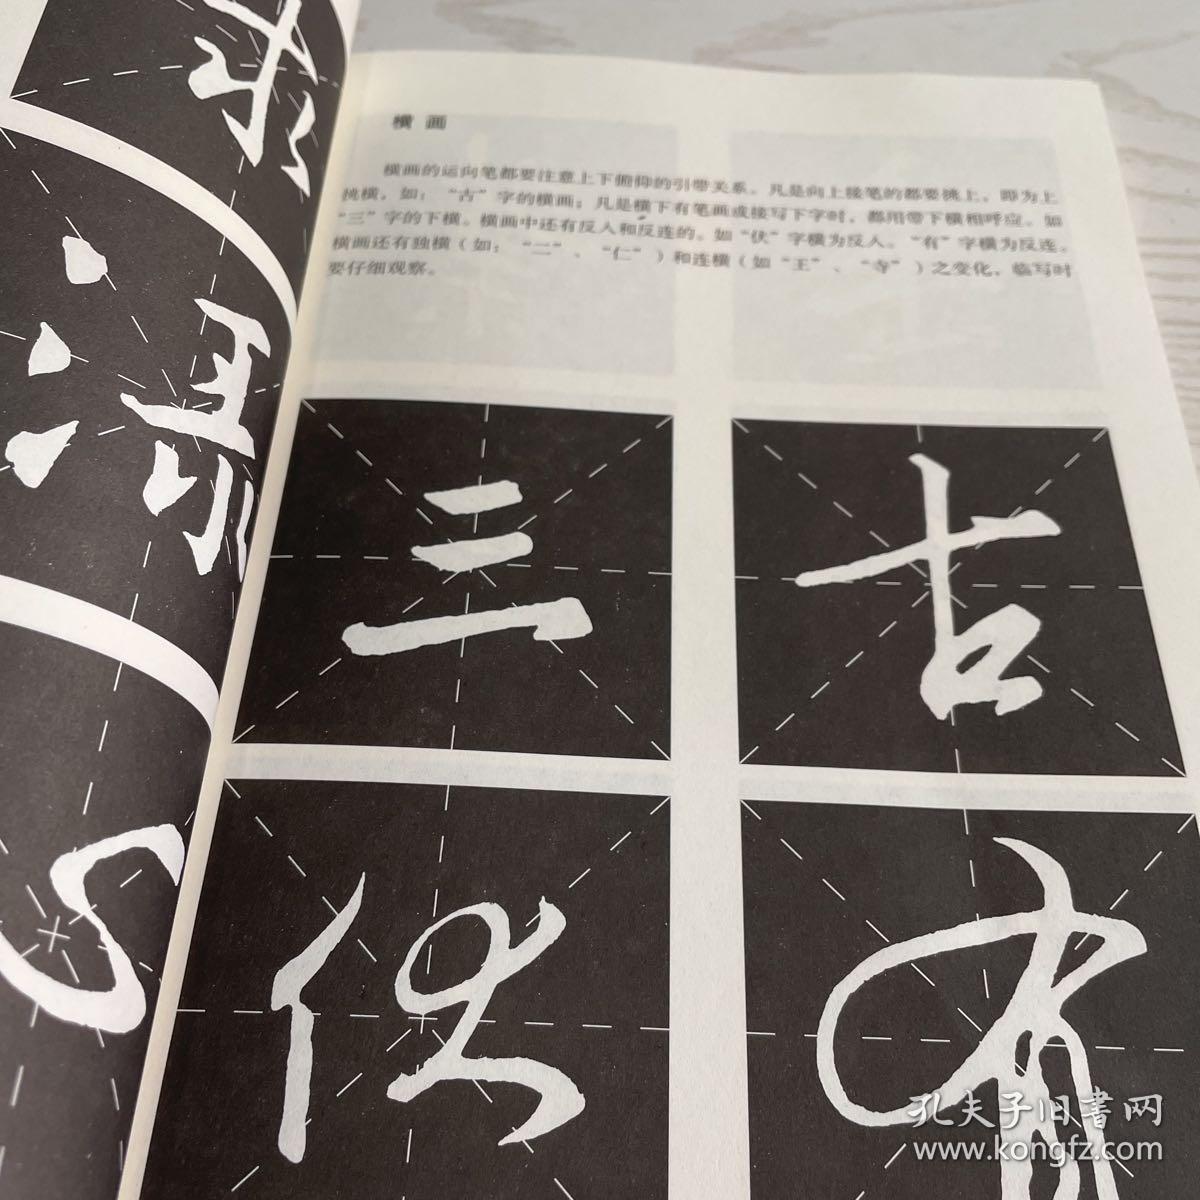 横画
横画的运向笔都要注意上下俯仰的引带关系。凡是向上接笔的都要挑上，即为上
挑横，如：“古”字的横画；凡是横下有笔画或接写下字时，都用带下横相呼应。如
“三”字的下横。横画中还有反人和反连的。如“伏”字横为反人。“有”字横为反连。
横画还有独横（如：“二”、“仁”）和连横（如“王”、“寺”）之变化，临写时
要仔细观察。
三 古
伏 有
孔夫子旧書网
www.kongfz.com